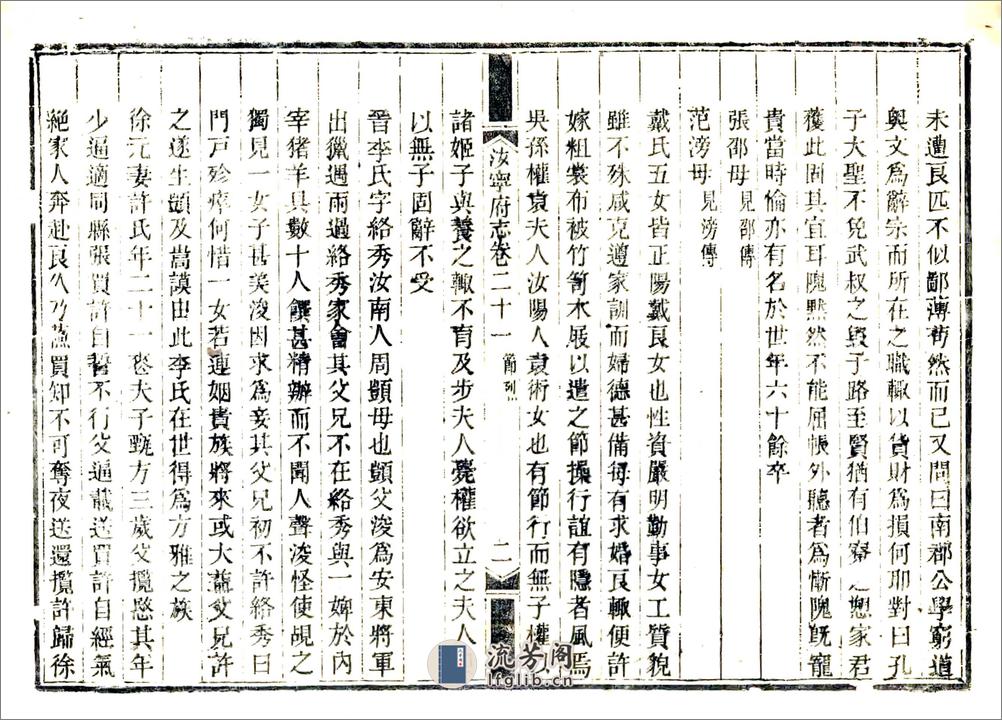 未遭良匹不似鄙薄苟然而已又問曰南郡公學窮道
奧文為辭宗而所在之職輒以貨財為損何耶對曰孔
子大聖不免武叔之毀子路至賢猶有伯寮之愬家君
獲此固其宜耳隗黙然不能屈帳外聽者為慚隗旣寵
貴當時倫亦有名於世年六十餘卒
張邵母見邵傳
范滂母見滂傳
戴氏五女皆正陽戴良女也性資嚴明勤事女工質貌
雖不殊咸克遵家訓而婦德甚備每有求婚良輒便許
嫁粗裳布被竹笥木屐以遣之節操行誼有隱者風焉
吳孫權袁夫人汝陽人袁術女也有節行而無子權
汝寧府志卷二十一 節列 二
諸姬子與養之輒不育及步夫人薨權欲立之夫人
以無子固辭不受
晉李氏字絡秀汝南人周顗母也顗父浚為安東將軍
出獵遇雨過絡秀家會其父兄不在絡秀與一婢於內
宰猪羊具數十人饌甚精辦而不聞人聲浚怪使覘之
獨見一女子甚美浚因求為妾其父兄初不許絡秀曰
門戸殄瘁何惜一女若連姻貴族將來或大益父兄許
之遂生顗及嵩謨由此李氏在世得為方雅之族
徐元妻許氏年二十一喪夫子甄方三歲父攬愍其年
少逼適同縣張買許自誓不行父逼載送買許自經氣
絕家人奔赴良久乃蘇買知不可奪夜送還攬許歸徐
流芳阁
lfglib.cn